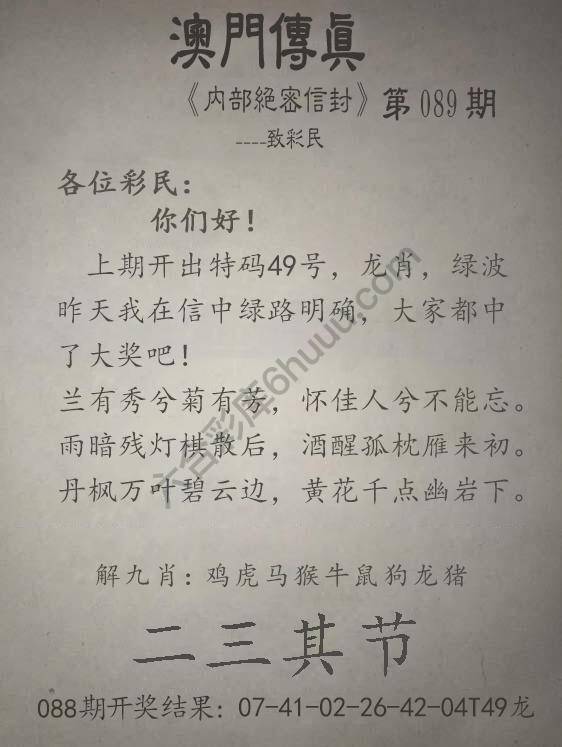 澳門傳眞
《内部絕密信封》第089期
----致彩民
各位彩民：
你们好！
上期开出特码49号，龙肖，绿波
昨天我在信中绿路明确，大家都中
了大奖吧！
兰有秀兮菊有芳，怀佳人兮不能忘。
雨暗残灯棋散后，酒醒孤枕雁来初。
丹枫万叶碧云边，黄花千点幽岩下。
解九肖：鸡虎马猴牛鼠狗龙猪
二三其节
088期开奖结果：07-41-02-26-42-04T49龙
六合彩库6huuu.com